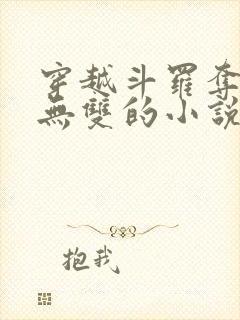 穿越斗羅奪
無雙的小說
抱我